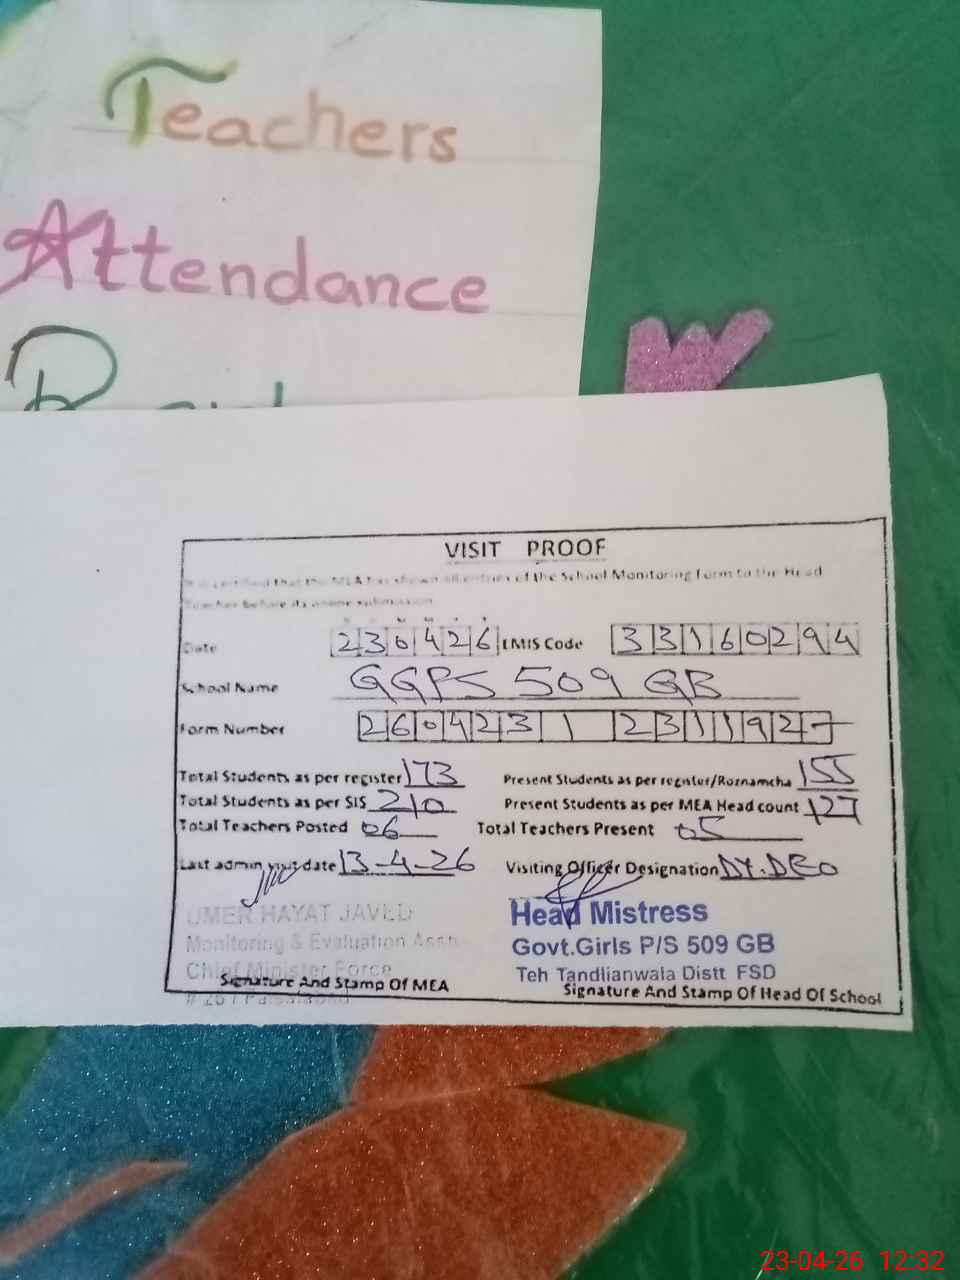 Teachers
Attendance
VISIT PROOF
It is certified that the MEA has shown all entries of the School Monitoring Form to the Head
Teacher before its online submission
Date 230426 EMIS Code 33160294
School Name GGPS 509 GB
Form Number 2604231 2311927
Total Students as per register 173 Present Students as per register/Roznamcha 155
Total Students as per SIS 210 Present Students as per MEA Head count 127
Total Teachers Posted 06 Total Teachers Present 05
Last admin visit date 13-4-26 Visiting Officer Designation DY.DEO
UMER HAYAT JAVED
Monitoring & Evaluation Asstt
Chief Minister Force
Signature And Stamp Of MEA
Head Mistress
Govt.Girls P/S 509 GB
Teh Tandlianwala Distt FSD
Signature And Stamp Of Head Of School
23-04-26 12:32